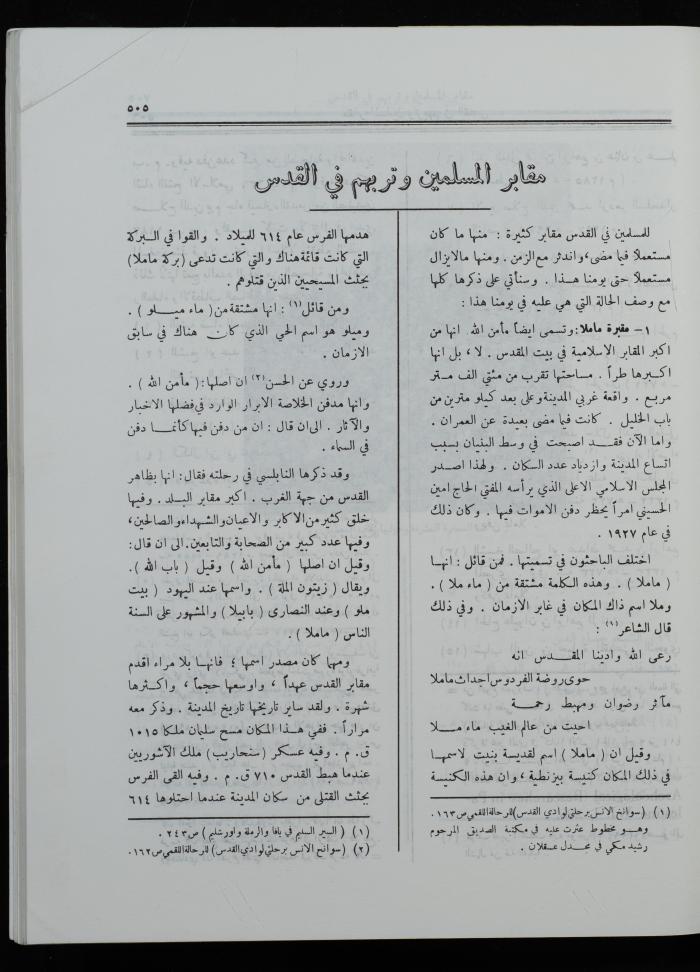 ٥٠٥
مقابر المسلمين وتربهم في القدس
للمسلمين في القدس مقابر كثيرة : منها ما كان
مستعملاً فيما مضى، واندثر مع الزمن . ومنها مالايزال
مستعملاً حتى يومنا هـذا . وسنأتي على ذكرها كلها
مع وصف الحالة التي هي عليه في يومنا هذا :
١ – مقبرة ماملا: وتسمى ايضاً مأمن الله انها من
اكبر المقابر الاسلامية في بيت المقدس . لا ، بل انها
اكبرها طراً . مساحتها تقرب من مئتي الف متر
مربع . واقعة غربي المدينة وعلى بعد كيلو مترين من
باب الخليل . كانت فيما مضى بعيدة عن العمران .
واما الآن فقد اصبحت في وسط البنيان بسبب
اتساع المدينة وازدياد عدد السكان . ولهذا اصدر
المجلس الاسلامي الاعلى الذي يرأسه المفتي الحاج امين
الحسيني امراً يحظر دفن الاموات فيها . وكان ذلك
في عام ١٩٢٧ .
اختلف الباحثون في تسميتها . فمن قائل : انها
( ماملا ) . وهذه الكلمة مشتقة من ( ماء ملا ) .
وملا اسم ذاك المكان في غابر الأزمان . وفي ذلك
قال الشاعر (١) :
رعى الله وادينا المقدس انه
حوى روضة الفردوس اجداث ماملا
مآثر رضوان ومهبط رحمة
احيت من عالم الغيب ماء ملا
وقيل ان ( ماملا ) اسم لقديسة بنيت لاسمها
في ذلك المكان كنيسة بيزنطية ، وان هذه الكنيسة
(١) (سوانح الانس برحلتي لوادي القدس) للرحالة اللقمي ص ١٦٣.
وهو مخطوط عثرت عليه في مكتبة الصديق المرحوم
رشيد مكي في مجدل عسقلان .
هدمها الفرس عام ٦١٤ للميلاد . والقوا في البركة
التي كانت قائمة هناك والتي كانت تدعى (بركة ماملا)
بجثث المسيحيين الذين قتلوهم .
ومن قائل(١) : انها مشتقة من ( ماء ميلو ) .
وميلو هو اسم الحي الذي كان هناك في سابق
الازمان .
وروي عن الحسن(٢) ان اصلها : ( مأمن الله ) .
وانها مدفن الخلاصة الابرار الوارد في فضلها الاخبار
والآثار . الى ان قال : ان من دفن فيها كأنما دفن
في السماء .
وقد ذكرها النابلسي في رحلته فقال : انها بظاهر
القدس من جهة الغرب . اكبر مقابر البلد . وفيها
خلق كثير من الاكابر والاعيان والشهداء والصالحين،
وفيها عدد كبير من الصحابة والتابعين. الى ان قال :
وقيل ان اصلها ( مأمن الله ) وقيل ( باب الله ).
ويقال ( زيتون الملة ) . واسمها عند اليهود ( بيت
ملو ) وعند النصارى ( بابيلا ) والمشهور على السنة
الناس ( ماملا ) .
ومهما كان مصدر اسمها ؛ فانها بلا مراء اقدم
مقابر القدس عهداً ، واوسعها حجماً ، واكثرها
شهرة . ولقد ساير تاريخها تاريخ المدينة . وذكر معه
مراراً . ففي هذا المكان مسح سليمان ملكا ١٠١٥
ق. م . وفيه عسكر ( سنحاريب ) ملك الآشوريين
عندما هبط القدس ٧١٠ ق. م . وفيه القى الفرس
بجثث القتلى من سكان المدينة عندما احتلوها ٦١٤
(١) ( السير السليم في يافا والرملة واورشليم ) ص ٢٤٣ .
(٢) (سوانح الانس برحلتي لوادي القدس) للرحالة اللقمي ص ١٦٢.